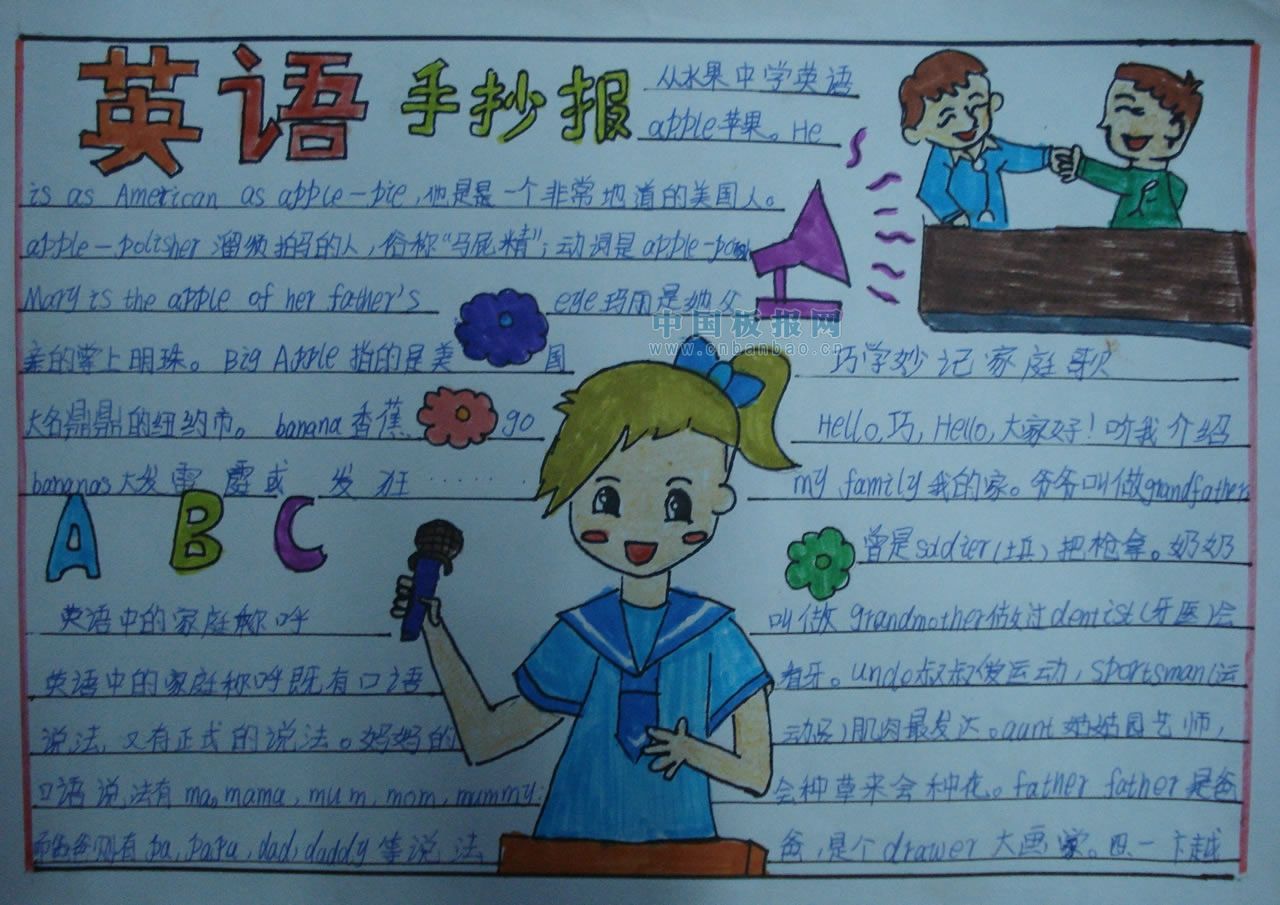 英语
手抄报
从水果中学英语
apple苹果。He
is as American as apple-pie,他是是一个非常地道的美国人。
apple-polisher 溜须拍马的人,俗称“马屁精”;动词是 apple-
Mary is the apple of her father's eye 玛丽是她父
亲的掌上明珠。Big Apple 指的是美国
大名鼎鼎的纽约市。 banana 香蕉 go
bananas 大发雷霆或 发 狂 ……
A B C
英语中的家庭称呼
英语中的家庭称呼既有口语
说法,又有正式的说法。妈妈的
口语说法有 ma, mama, mum, mom, mummy;
而爸爸则有 pa, papa, dad, daddy 等说法
巧学妙记家庭歌
Hello,巧, Hello,大家好!听我介绍
my family 我的家。爷爷叫做grandfather
曾是soldier(士兵)把枪拿。奶奶
叫做 grandmother做过dentist(牙医)会
看牙。uncle叔叔爱运动, sportsman(运
动员)肌肉最发达。aunt 姑姑园艺师,
会种草来会种花。father father 是爸
爸,是个 drawer 大画家。
中国板报网
www.cnbanbao.cn